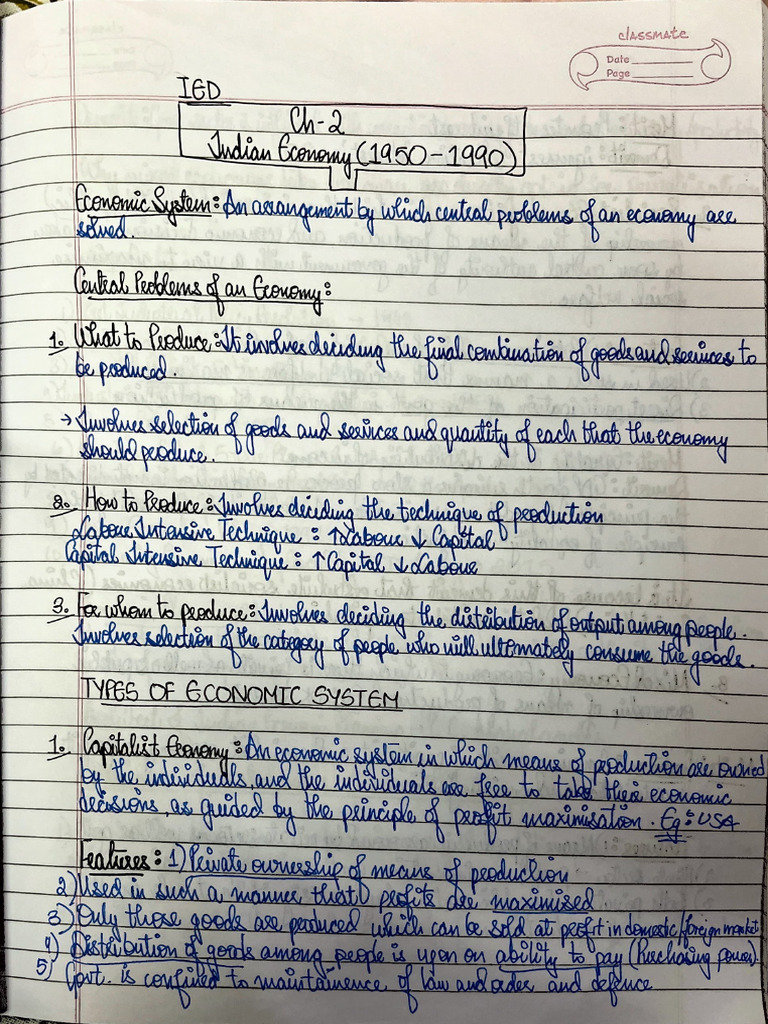 classmate
Date
Page
IED
Ch-2
Indian Economy (1950-1990)
Economic System: An arrangement by which central problems of an economy are
solved.
Central Problems of an Economy:
1. What to Produce: It involves deciding the final combination of goods and services to
be produced.
→ Involves selection of goods and services and quantity of each that the economy
should produce.
2. How to Produce: Involves deciding the technique of production
Labour Intensive Technique: ↑Labour ↓ Capital
Capital Intensive Technique: ↑Capital ↓ Labour
3. For whom to produce: Involves deciding the distribution of output among people.
Involves selection of the category of people who will ultimately consume the goods.
TYPES OF ECONOMIC SYSTEM
1. Capitalist Economy: An economic system in which means of production are owned
by the individuals, and the individuals are free to take their economic
decisions, as guided by the principle of profit maximisation. Eg: USA
Features: 1) Private ownership of means of production
2) Used in such a manner that profits are maximised
3) Only those goods are produced which can be sold at profit in domestic/foreign market
4) Distribution of goods among people is upon on ability to pay (Purchasing power).
5) Govt. is confined to maintainence of law and order and defence